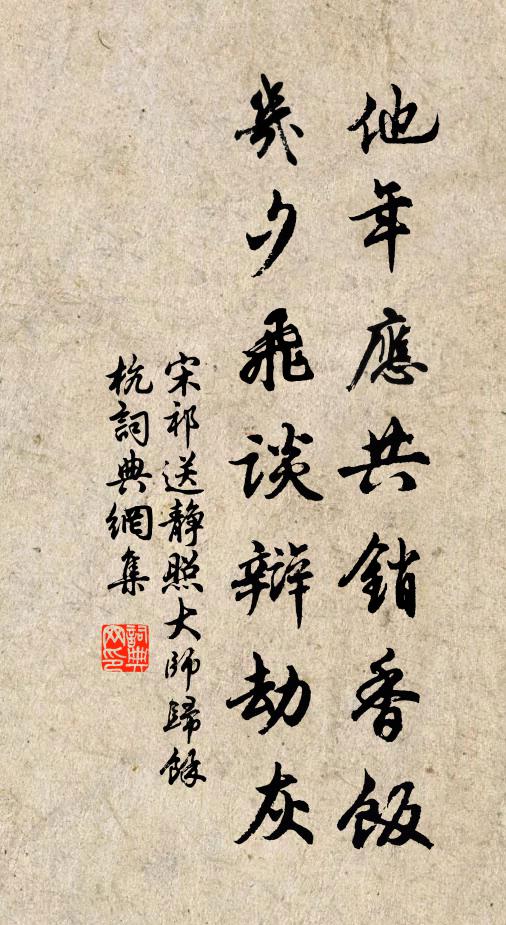 他年應共銷香飯
幾夕飛談辯劫灰
宋祁送靜照大師歸餘
杭詞典網集
詞典網印